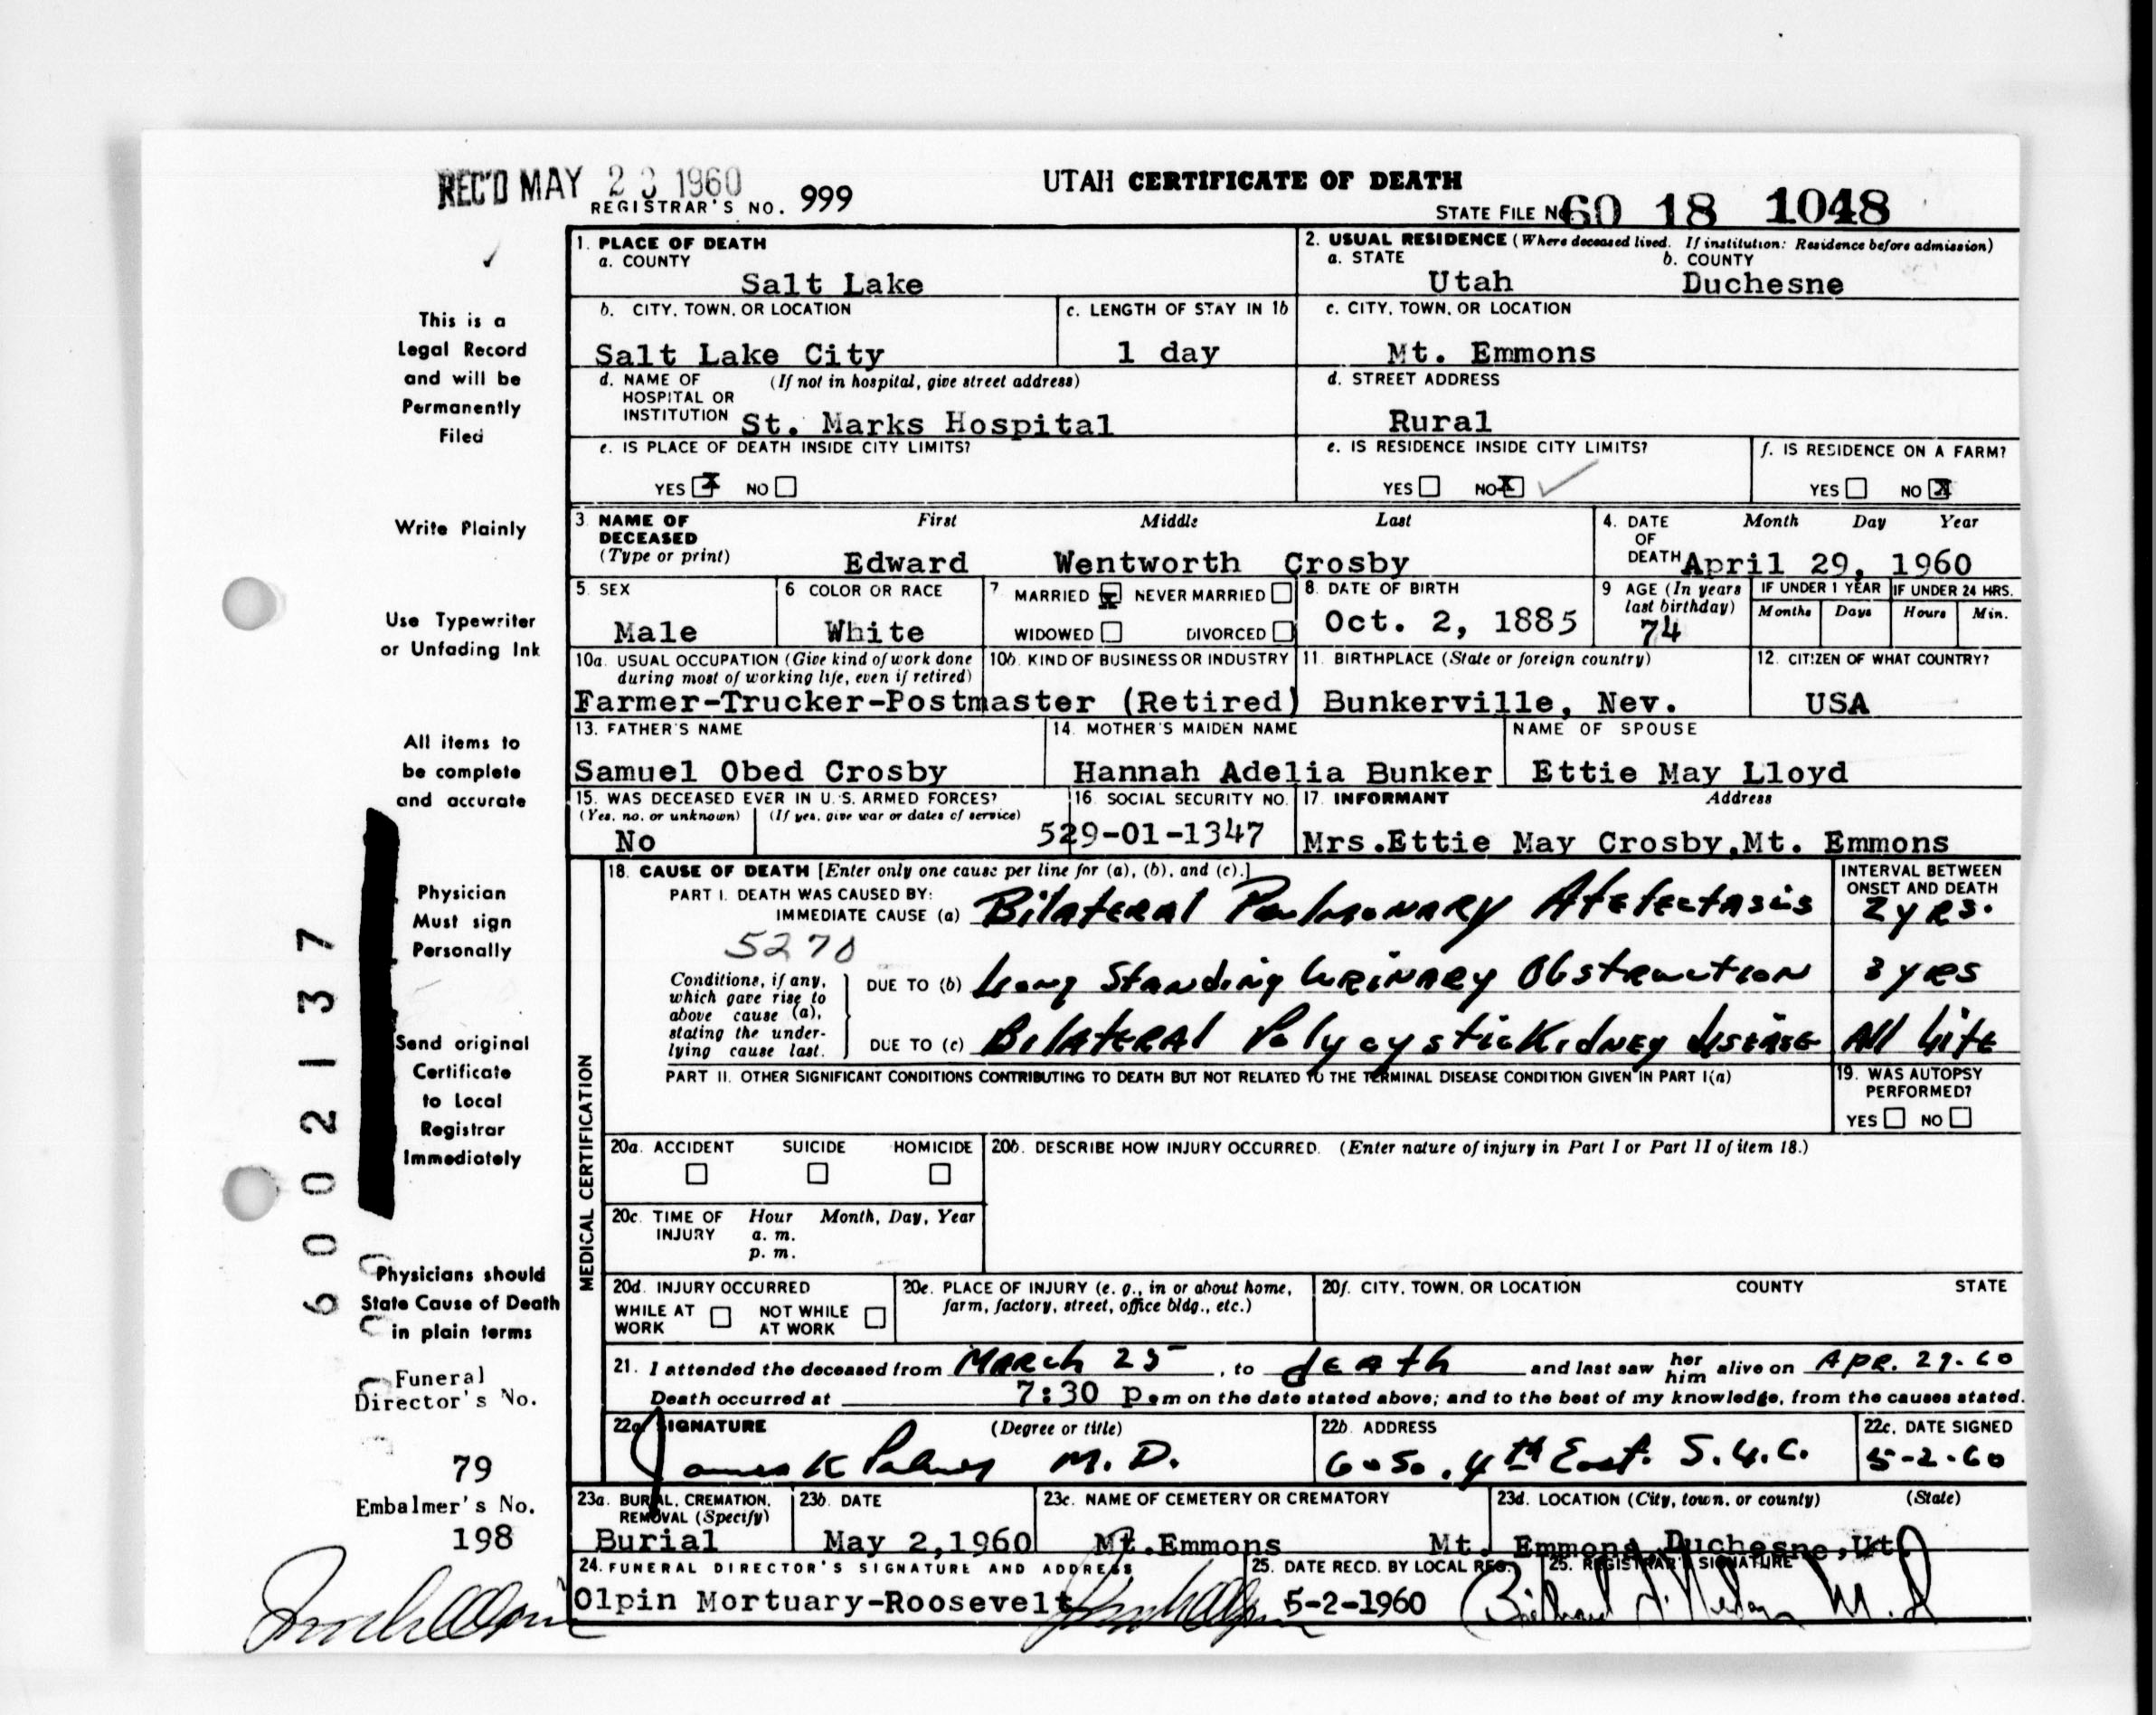 REC'D MAY 2 1960
REGISTRAR'S NO. 999
UTAH CERTIFICATE OF DEATH
STATE FILE No. 60 18 1048
This is a
Legal Record
and will be
Permanently
Filed
Write Plainly
Use Typewriter
or Unfading Ink
All items to
be complete
and accurate
Physician
Must sign
Personally
Send original
Certificate
to Local
Registrar
Immediately
Physicians should
State Cause of Death
in plain terms
Funeral
Director's No.
79
Embalmer's No.
198
6002137
1. PLACE OF DEATH
a. COUNTY
Salt Lake
2. USUAL RESIDENCE (Where deceased lived. If institution: Residence before admission)
a. STATE b. COUNTY
Utah Duchesne
b. CITY, TOWN, OR LOCATION
Salt Lake City
c. LENGTH OF STAY IN 1b
1 day
c. CITY, TOWN, OR LOCATION
Mt. Emmons
d. NAME OF (If not in hospital, give street address)
HOSPITAL OR
INSTITUTION St. Marks Hospital
d. STREET ADDRESS
Rural
e. IS PLACE OF DEATH INSIDE CITY LIMITS?
YES X NO
e. IS RESIDENCE INSIDE CITY LIMITS?
YES NO X
f. IS RESIDENCE ON A FARM?
YES NO X
3. NAME OF DECEASED First Middle Last
(Type or print) Edward Wentworth Crosby
4. DATE OF DEATH Month Day Year
April 29, 1960
5. SEX
Male
6 COLOR OR RACE
White
7 MARRIED X NEVER MARRIED
WIDOWED DIVORCED
8. DATE OF BIRTH
Oct. 2, 1885
9 AGE (In years last birthday)
74
IF UNDER 1 YEAR IF UNDER 24 HRS.
Months Days Hours Min.
10a. USUAL OCCUPATION (Give kind of work done during most of working life, even if retired)
10b. KIND OF BUSINESS OR INDUSTRY
Farmer-Trucker-Postmaster (Retired)
11. BIRTHPLACE (State or foreign country)
Bunkerville, Nev.
12. CITIZEN OF WHAT COUNTRY?
USA
13. FATHER'S NAME
Samuel Obed Crosby
14. MOTHER'S MAIDEN NAME
Hannah Adelia Bunker
NAME OF SPOUSE
Ettie May Lloyd
15. WAS DECEASED EVER IN U.S. ARMED FORCES?
(Yes, no, or unknown) (If yes, give war or dates of service)
No
16. SOCIAL SECURITY NO.
529-01-1347
17. INFORMANT Address
Mrs.Ettie May Crosby,Mt. Emmons
MEDICAL CERTIFICATION
18. CAUSE OF DEATH [Enter only one cause per line for (a), (b), and (c).]
PART I. DEATH WAS CAUSED BY:
IMMEDIATE CAUSE (a) Bilateral Pulmonary Atelectasis
5270
Conditions, if any, which gave rise to above cause (a), stating the underlying cause last.
DUE TO (b) Long Standing Urinary Obstruction
DUE TO (c) Bilateral Polycystic Kidney disease
INTERVAL BETWEEN ONSET AND DEATH
2 yrs.
3 yrs
All Life
PART II. OTHER SIGNIFICANT CONDITIONS CONTRIBUTING TO DEATH BUT NOT RELATED TO THE TERMINAL DISEASE CONDITION GIVEN IN PART I(a)
19. WAS AUTOPSY PERFORMED?
YES NO
20a. ACCIDENT SUICIDE HOMICIDE
20b. DESCRIBE HOW INJURY OCCURRED. (Enter nature of injury in Part I or Part II of item 18.)
20c. TIME OF INJURY Hour Month, Day, Year
a. m.
p. m.
20d. INJURY OCCURRED
WHILE AT WORK NOT WHILE AT WORK
20e. PLACE OF INJURY (e. g., in or about home, farm, factory, street, office bldg., etc.)
20f. CITY, TOWN, OR LOCATION COUNTY STATE
21. I attended the deceased from March 25, to death and last saw her him alive on Apr. 29-60
Death occurred at 7:30 p.m on the date stated above; and to the best of my knowledge, from the causes stated.
22a. SIGNATURE (Degree or title)
James K Palmer M. D.
22b. ADDRESS
6 So. 4th East. S.L.C.
22c. DATE SIGNED
5-2-60
23a. BURIAL, CREMATION, REMOVAL (Specify)
Burial
23b. DATE
May 2,1960
23c. NAME OF CEMETERY OR CREMATORY
Mt.Emmons
23d. LOCATION (City, town, or county) (State)
Mt. Emmons,Duchesne,Ut
24. FUNERAL DIRECTOR'S SIGNATURE AND ADDRESS
Olpin Mortuary-Roosevelt
25. DATE RECD. BY LOCAL REG.
5-2-1960
25. REGISTRAR'S SIGNATURE